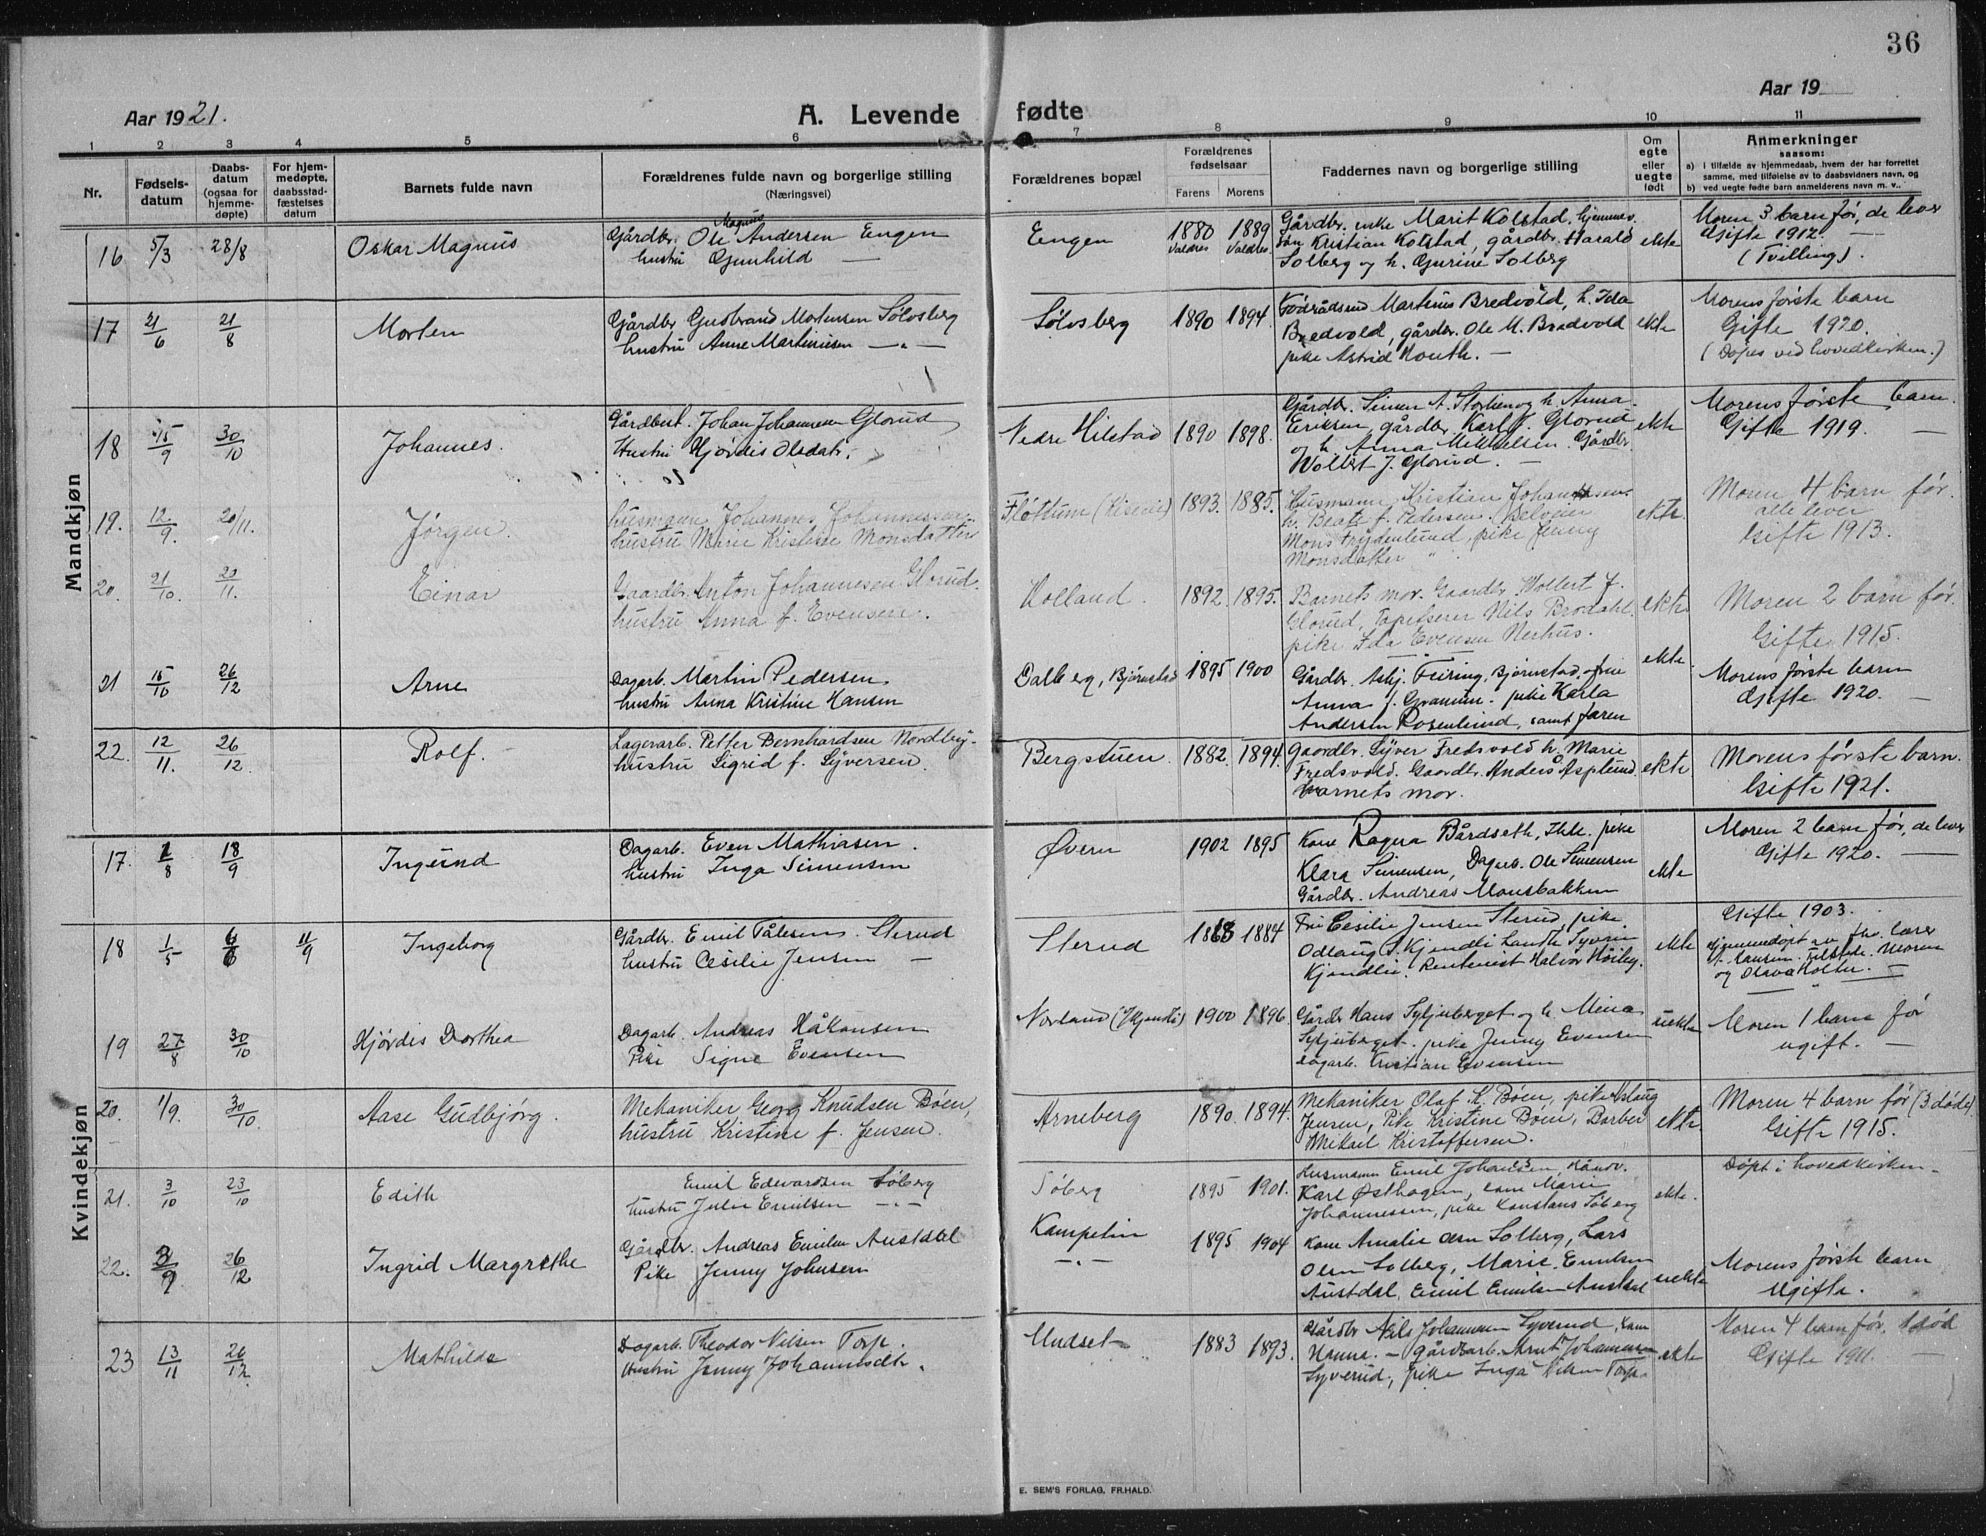 36
Aar 1921.
A. Levende fødte
Aar 19
1 2 3 4 5 6 7 8 9 10 11
Nr.
Fødsels-
datum
Daabs-
datum
(ogsaa for
hjemme-
døpte)
For hjem-
medøpte,
daabsstad-
fæstelses
datum
Barnets fulde navn
Forældrenes fulde navn og borgerlige stilling
(Næringsvei)
Forældrenes bopæl
Forældrenes
fødselsaar
Farens Morens
Faddernes navn og borgerlige stilling
Om
egte
eller
uegte
født
Anmerkninger
saasom:
a) i tilfælde av hjemmedaab, hvem der har forrettet
samme, med tilføielse av to daabsvidners navn, og
b) ved uegte fødte barn anmelderens navn m. v..
Mandkjøn
16 5/3 28/8 Oskar Magnus
Magnus
Gårdbr. Ole Andersen Engen
hustru Gunhild —
Engen 1880 1889
Valdres Valdres
Gårdbr. enke Marit Kolstad, hjemmev.
søn Kristian Kolstad, gårdbr. Harald
Solberg og h. Gurine Solberg
ekte
Moren 3 barn før, de lever
Gifte 1912. —
(Tvilling).
17 21/6 21/8 Morten
Gårdbr Gudbrand Mortensen Solvsberg
hustru Anne Martinusen —„—
Sølvsberg 1890 1894
Føderådsmd Martinus Bredvold, h. Ida
Bredvold, gårdbr. Ole M. Bredvold
pike Astrid Houth. —
ekte
Morens første barn
Gifte 1920.
(Døpes ved hovedkirken.)
18 15/9 30/10 Johannes.
Gårdbest. Johan Johannesen Glorud
Hustru Hjørdis Olsdatr.
Nedre Hilstad 1890 1898.
Gårdbr. Simen A. Stortien og h. Anna
Eriksen, gårdbr. Karl J. Glorud
og h. Anna Mikkelsen. Gårdbr.
Wollert J. Glorud. —
ekte
Morens første barn.
Gifte 1919. —
19. 12/9. 20/11. Jørgen.
husmann Johannes Johannessen
hustru Marie Kristine Monsdatter
Fløttum 1893. 1885.
Husmann Kristian Johannesen
h. Beate f. Pedersen. Selveier
Mons Frydenlund, pike Jenny
Monsdatter "
ekte.
Moren 4 barn før.
alle lever
Gifte 1913.
20. 21/10. 20/11. Einar
Gaardbr. Anton Johannesen Glorud.
hustru Anna f. Evensen.
Holland. 1892. 1895.
Barnets mor. Gaardbr. Wollert J.
Glorud, Tapetserer Nils Brodahl.
pike Ida Evensen Nerhus.
ekte
Moren 2 barn før.
Gifte 1915.
21 15/10 26/12 Arne
Dagarb. Martin Pedersen
hustru Anna Kristine Hansen
Dalberg, Bjørnstad 1895 1900
Gårdbr. Asbj. Feiring, Bjørnstad, frue
Anna f. Granum. pike Karla
Andersen Rosenlund, samt faren
ekte.
Morens første barn
Gifte 1920. —
22. 12/11. 26/12. Rolf.
Lagerarb. Petter Bernhardsen Nordby.
hustru Sigrid f. Syversen.
Bergstuen. 1882. 1894.
Gaardbr. Syver Fredsvold h. Marie
Fredsvold. Gaardbr. Anders Asplund.
barnets mor.
ekte
Morens første barn.
Gifte 1921.
Kvindekjøn
17. 1/8 18/9 Ingrind
Dagarb. Even Mathiasen.
hustru Inga Simensen
Øvern 1902 1895
Kone Ragna Bårdseth, pike
Klara Simensen, Dagarb. Ole Simensen
Gårdbr. Andreas Mousbakken
ekte
Moren 2 barn før, de lever
Gifte 1920. —
18 1/5 6/6 11/9 Ingeborg
Gårdbr. Emil Pålesen Sterud
hustru Cecilie Jensen —
Sterud 1868 1884
Fru Cecilie Jensen Sterud, pike
Odlaug Kjendli
Kjendlie. Rentenist Halvor Høiby.
ekte
Gifte 1903.
Hjemmedøpt av fhv. lærer
og Olava Holter. —
19 27/8 30/10 Hjørdis Dorthea
Dagarb. Andreas Håkonsen
Pike Signe Evensen
Norland (Kjendli) 1900 1896
Gårdbr Hans Syljuberget og h. Mina
Syljuberget. pike Jenny Evensen
Dagarb. Kristian Evensen
uekte
Moren 1 barn før
ugift. —
20. 1/9. 30/10. Aase Gudbjørg.
Mekaniker Georg Knudsen Bøen,
hustru Kristine f. Jensen.
Arneberg 1890. 1894.
Mekaniker Olaf K. Bøen, pike Aslaug
Jensen, Pike Kristine Bøen, Barber
Mikael Kristoffersen.
ekte.
Moren 4 barn før (3 døde)
Gifte 1915.
21. 3/10 23/10 Edith
Emil Edevardsen Søberg
hustru Julie Emilsen —„—
Søberg 1895 1901.
Husmann Emil Johansen, Håndv.
Karl Østhagen, kone Marie
Johannessen, pike Konstans Søberg
ekte.
Døpt i hovedkirken.
22. 3/9 26/12 Ingrid Margrethe
Gårdbr. Andreas Emilsen Austdal
Pike Jenny Johnsen
Kampetin
—„—
1895 1904
Kone Amalie Olsen Solberg, Lars
Olsen Solberg, Marie Emilsen
Austdal, Emil Emilsen Austdal
uekte
Morens første barn
Ugifte.
23 13/11 26/12 Mathilde
Dagarb. Theodor Nilsen Torp.
Hustru Jenny Johannesdtr.
Mudset 1883 1893.
Gårdbr Nils Johannesen Syverud, kone
Nanna. — Gårdsarb. Arnt Johannesen
Syverud, pike Inga Nilsen Torp.
ekte
Moren 4 barn før, 1 død
Gifte 1911. —
E. SEM'S FORLAG, FR.HALD.